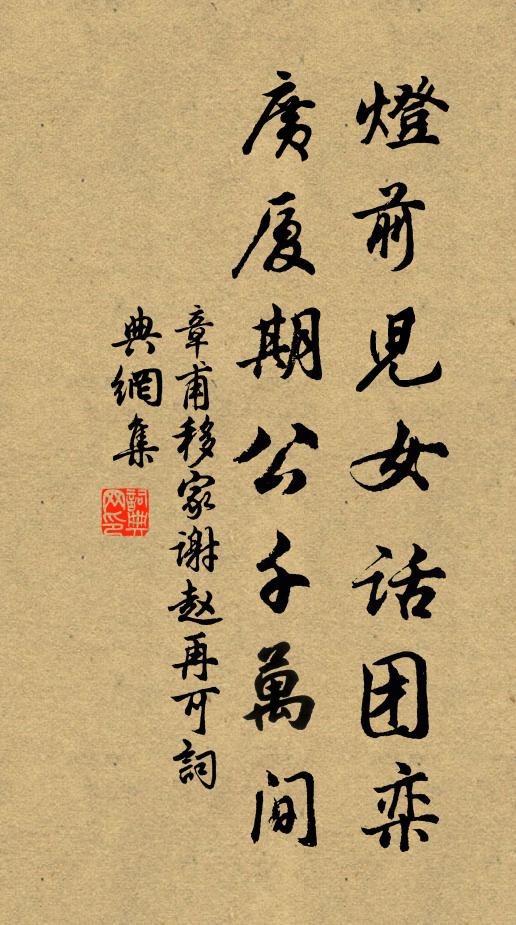 燈前児女話团栾
廣厦期公千萬间
章甫移家谢赵再可詞
典網集
詞典网印